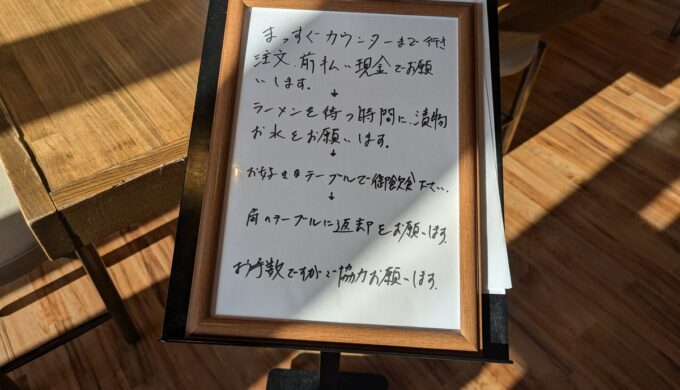 まっすぐカウンターまで行き
注文、前払い現金でお願
いします。
↓
ラーメンを待つ時間に、漬物
お水をお願いします。
↓
お好きなテーブルで御飲食下さい。
↓
角のテーブルに返却をお願いします。
お手数ですがご協力お願いします。